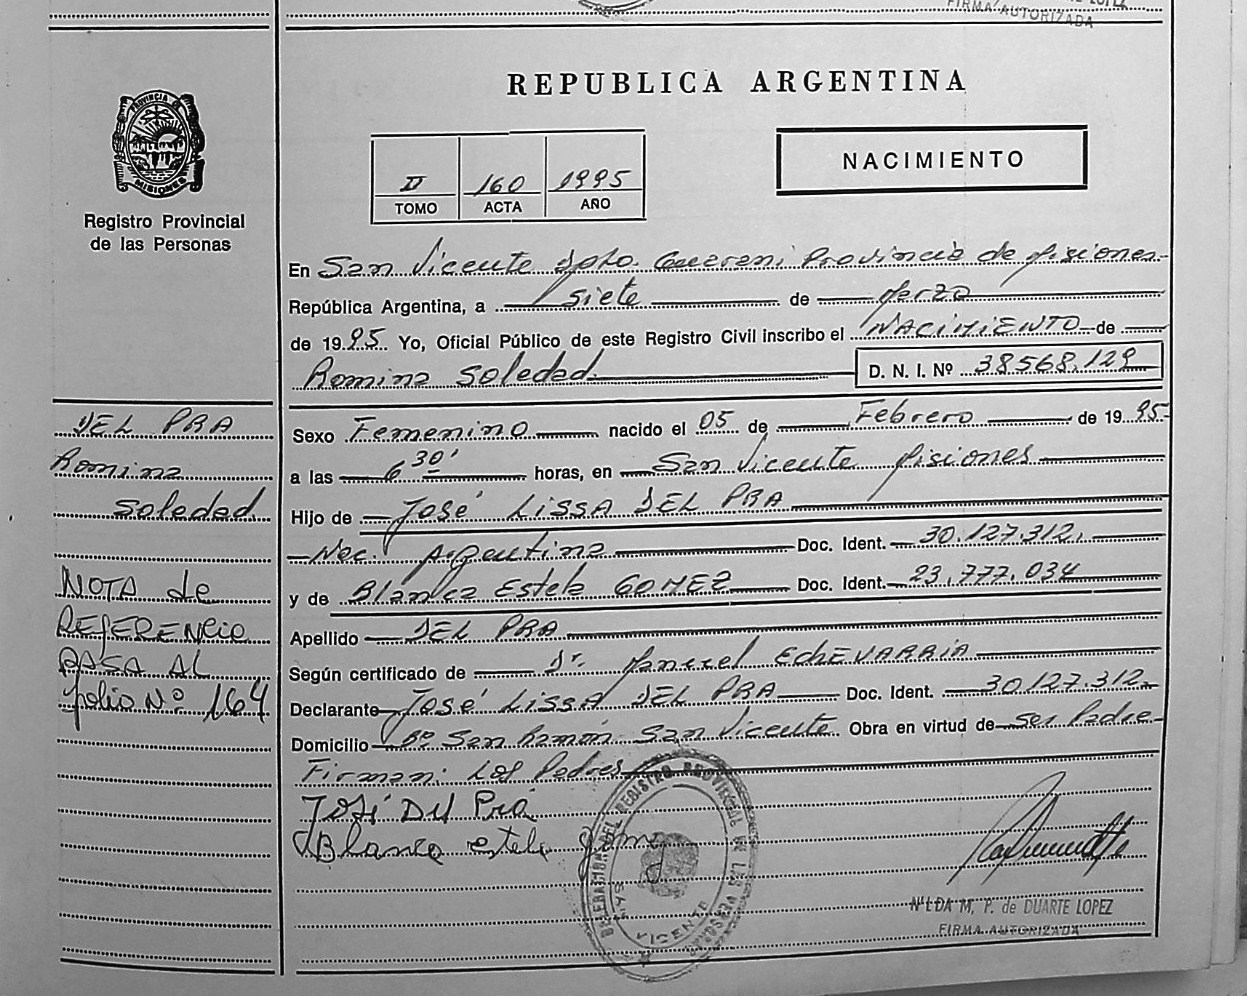 FIRMA AUTORIZADA
REPUBLICA ARGENTINA
PROVINCIA DE
MISIONES
Registro Provincial
de las Personas
II 160 1995
TOMO ACTA AÑO
NACIMIENTO
En San Vicente Dpto. Guarani Provincia de Misiones
República Argentina, a siete de Marzo
de 1995 Yo, Oficial Público de este Registro Civil inscribo el NACIMIENTO de
Romina Soledad D. N. I. Nº 38568.129
DEL PRA
Romina
Soledad
NOTA de
REFERENcia
PASA AL
folio Nº 164
Sexo Femenino nacido el 05 de Febrero de 1995
a las 6 30' horas, en San Vicente Misiones
Hijo de José LISSA DEL PRA
Nac. Argentina Doc. Ident. 30.127.312.
y de Blanca Estela GOMEZ Doc. Ident. 23.777.034
Apellido DEL PRA
Según certificado de Dr. Manuel EcHEVARRIA
Declarante José LISSA DEL PRA Doc. Ident. 30.127.312
Domicilio Bº San Ramón San Vicente Obra en virtud de ser Padre
Firman: Los Padres
José Del Prá
Blanca estela Gomez
DELEGACION DEL REGISTRO PROVINCIAL DE LAS PERSONAS
VICENTE
NILDA M. P. de DUARTE LOPEZ
FIRMA AUTORIZADA